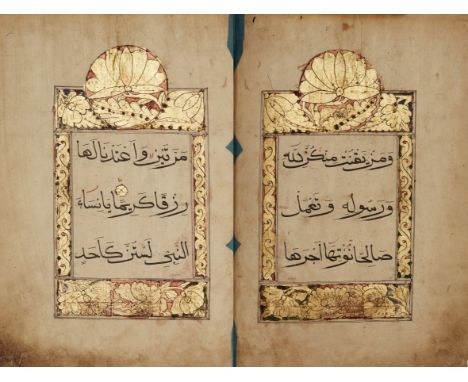 ومن يقنت منكن لله
ورسوله وتعمل
صالحا نؤتها اجرها
مرتين واعتدنا لها
رزقا كريما يا نساء
النبي لستن كاحد